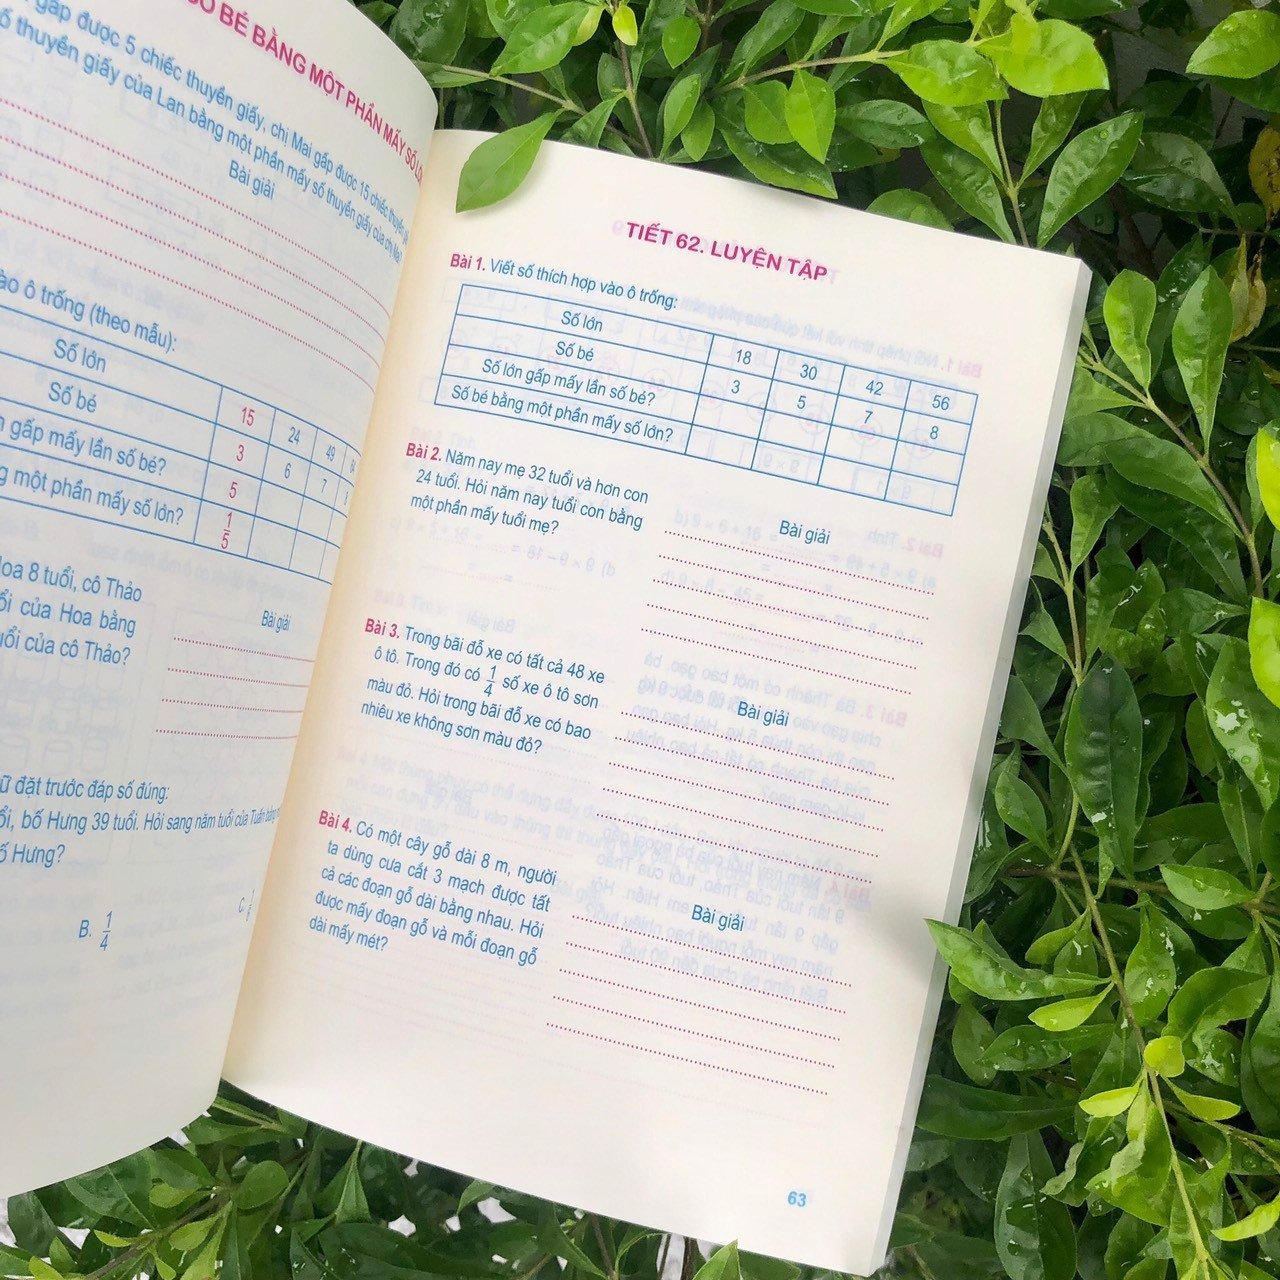 SỐ BÉ BẰNG MỘT PHẦN MẤY SỐ LỚN
gấp được 5 chiếc thuyền giấy, chị Mai gấp được 15 chiếc thuyền
số thuyền giấy của Lan bằng một phần mấy số thuyền giấy của chị Mai?
Bài giải
vào ô trống (theo mẫu):
Số lớn 15 24 49
Số bé 3 6 7
gấp mấy lần số bé? 5
một phần mấy số lớn? 1/5
Hoa 8 tuổi, cô Thảo
của Hoa bằng
tuổi của cô Thảo?
Bài giải
đặt trước đáp số đúng:
bố Hưng 39 tuổi. Hỏi sang năm tuổi của Tuấn bằng
Hưng?
B. 1/4
C.
TIẾT 62. LUYỆN TẬP
Bài 1. Viết số thích hợp vào ô trống:
Số lớn 18 30 42 56
Số bé 3 5 7 8
Số lớn gấp mấy lần số bé?
Số bé bằng một phần mấy số lớn?
Bài 2. Năm nay mẹ 32 tuổi và hơn con
24 tuổi. Hỏi năm nay tuổi con bằng
một phần mấy tuổi mẹ?
Bài giải
Bài 3. Trong bãi đỗ xe có tất cả 48 xe
ô tô. Trong đó có 1/4 số xe ô tô sơn
màu đỏ. Hỏi trong bãi đỗ xe có bao
nhiêu xe không sơn màu đỏ?
Bài giải
Bài 4. Có một cây gỗ dài 8 m, người
ta dùng cưa cắt 3 mạch được tất
cả các đoạn gỗ dài bằng nhau. Hỏi
được mấy đoạn gỗ và mỗi đoạn gỗ
dài mấy mét?
Bài giải
63